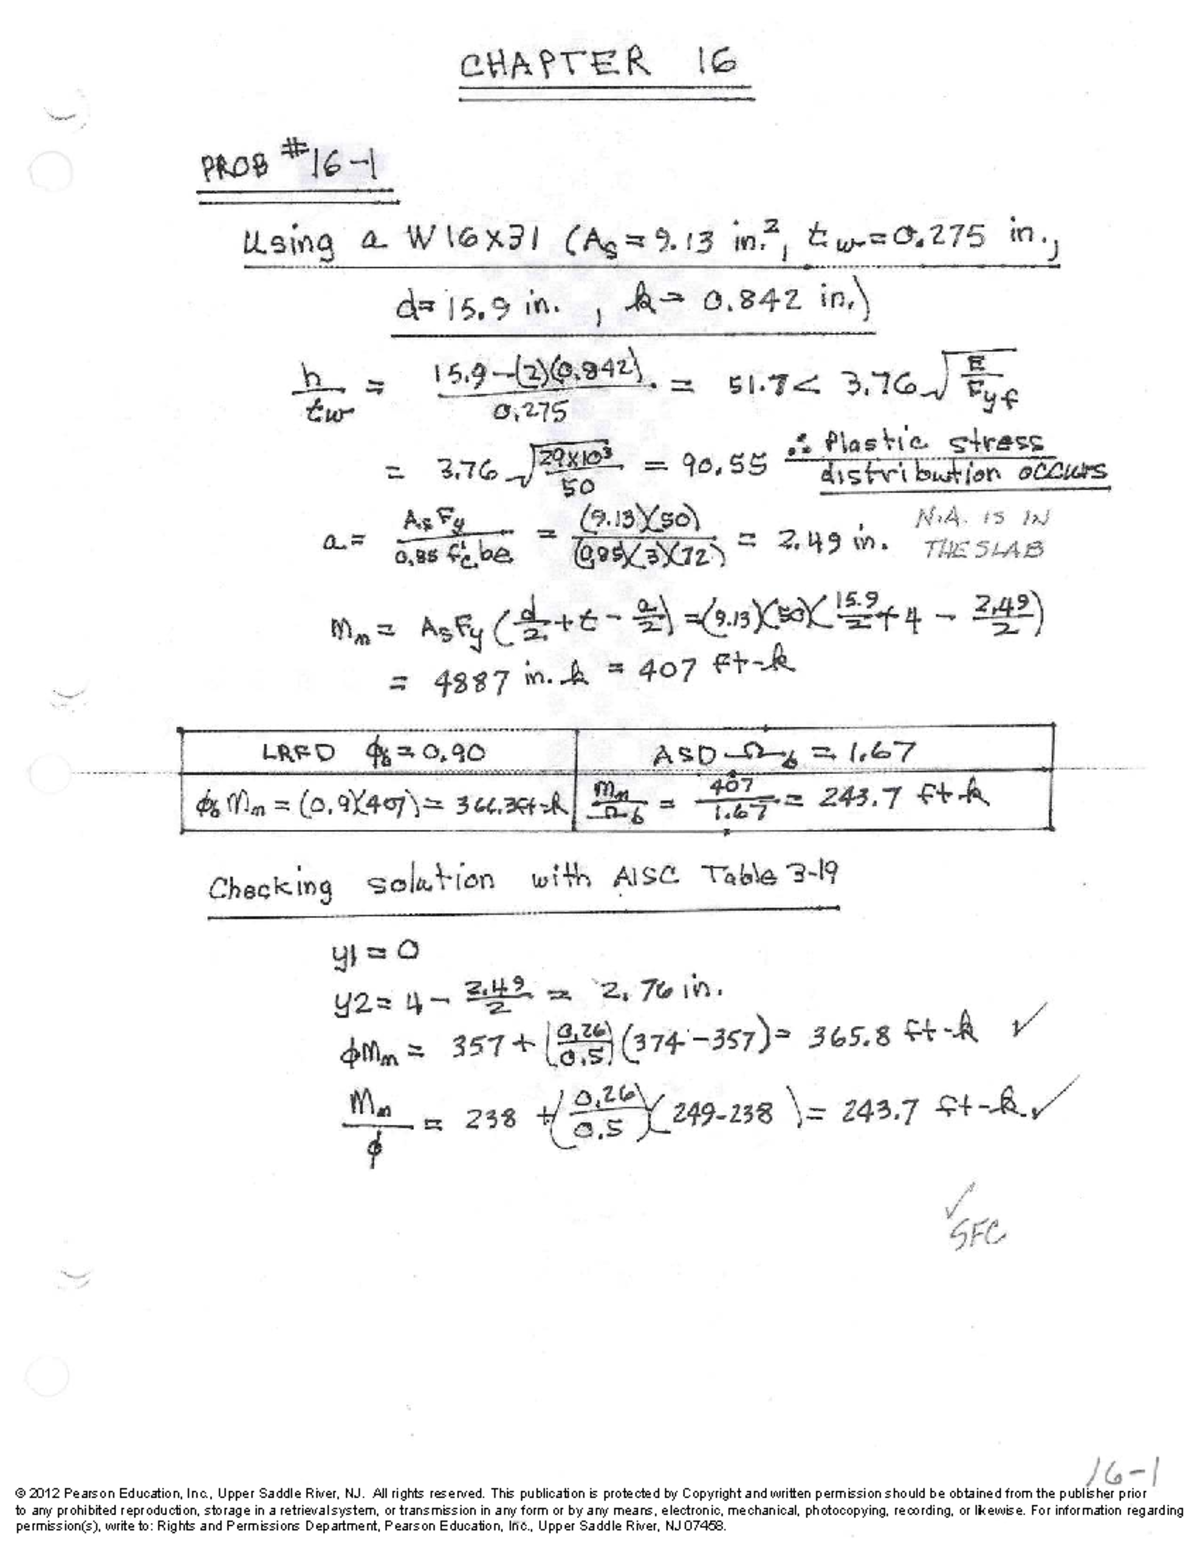 CHAPTER 16
PROB #16-1
Using a W16X31 (As = 9.13 in.², tw = 0.275 in.,
d = 15.9 in., k = 0.842 in.)
h/tw = (15.9-(2)(0.842))/0.275 = 51.7 < 3.76 √(E/Fyf)
= 3.76 √(29X10³/50) = 90.55 ∴ Plastic stress
distribution occurs
a = AsFy/(0.85 f'c be) = (9.13)(50)/((0.85)(3)(72)) = 2.49 in. N.A. IS IN
THE SLAB
Mn = AsFy (d/2 + t - a/2) = (9.13)(50)(15.9/2 + 4 - 2.49/2)
= 4887 in.k = 407 ft-k
LRFD ϕb = 0.90 ASD Ωb = 1.67
ϕb Mn = (0.9)(407) = 366.3 ft-k Mn/Ωb = 407/1.67 = 243.7 ft-k
Checking solution with AISC Table 3-19
y1 = 0
y2 = 4 - 2.49/2 = 2.76 in.
ϕMn = 357 + (0.26/0.5)(374-357) = 365.8 ft-k ✓
Mn/ϕ = 238 + (0.26/0.5)(249-238) = 243.7 ft-k. ✓
✓
SFC
16-1
© 2012 Pearson Education, Inc., Upper Saddle River, NJ. All rights reserved. This publication is protected by Copyright and written permission should be obtained from the publisher prior
to any prohibited reproduction, storage in a retrieval system, or transmission in any form or by any means, electronic, mechanical, photocopying, recording, or likewise. For information regarding
permission(s), write to: Rights and Permissions Department, Pearson Education, Inc., Upper Saddle River, NJ 07458.